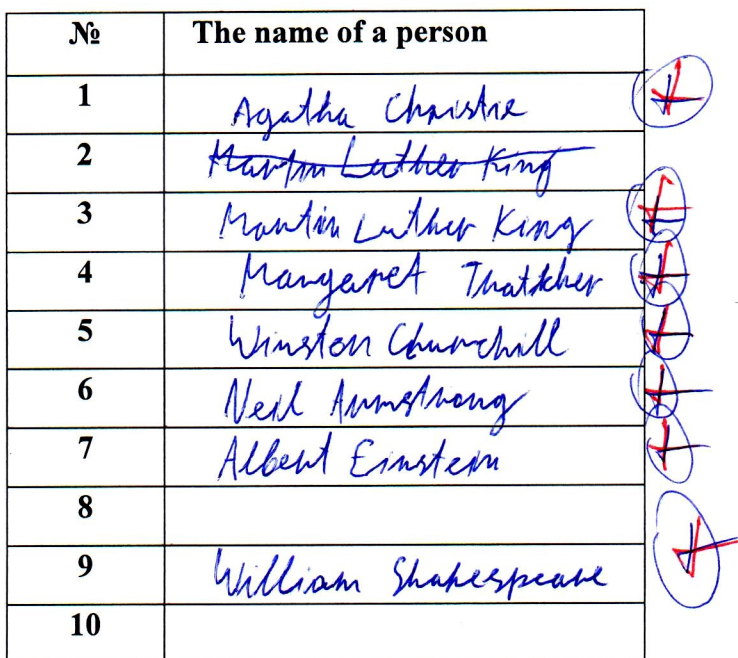 № The name of a person
1 Agatha Christie
2 Martin Luther King
3 Martin Luther King
4 Margaret Thatcher
5 Winston Churchill
6 Neil Armstrong
7 Albert Einstein
8
9 William Shakespeare
10